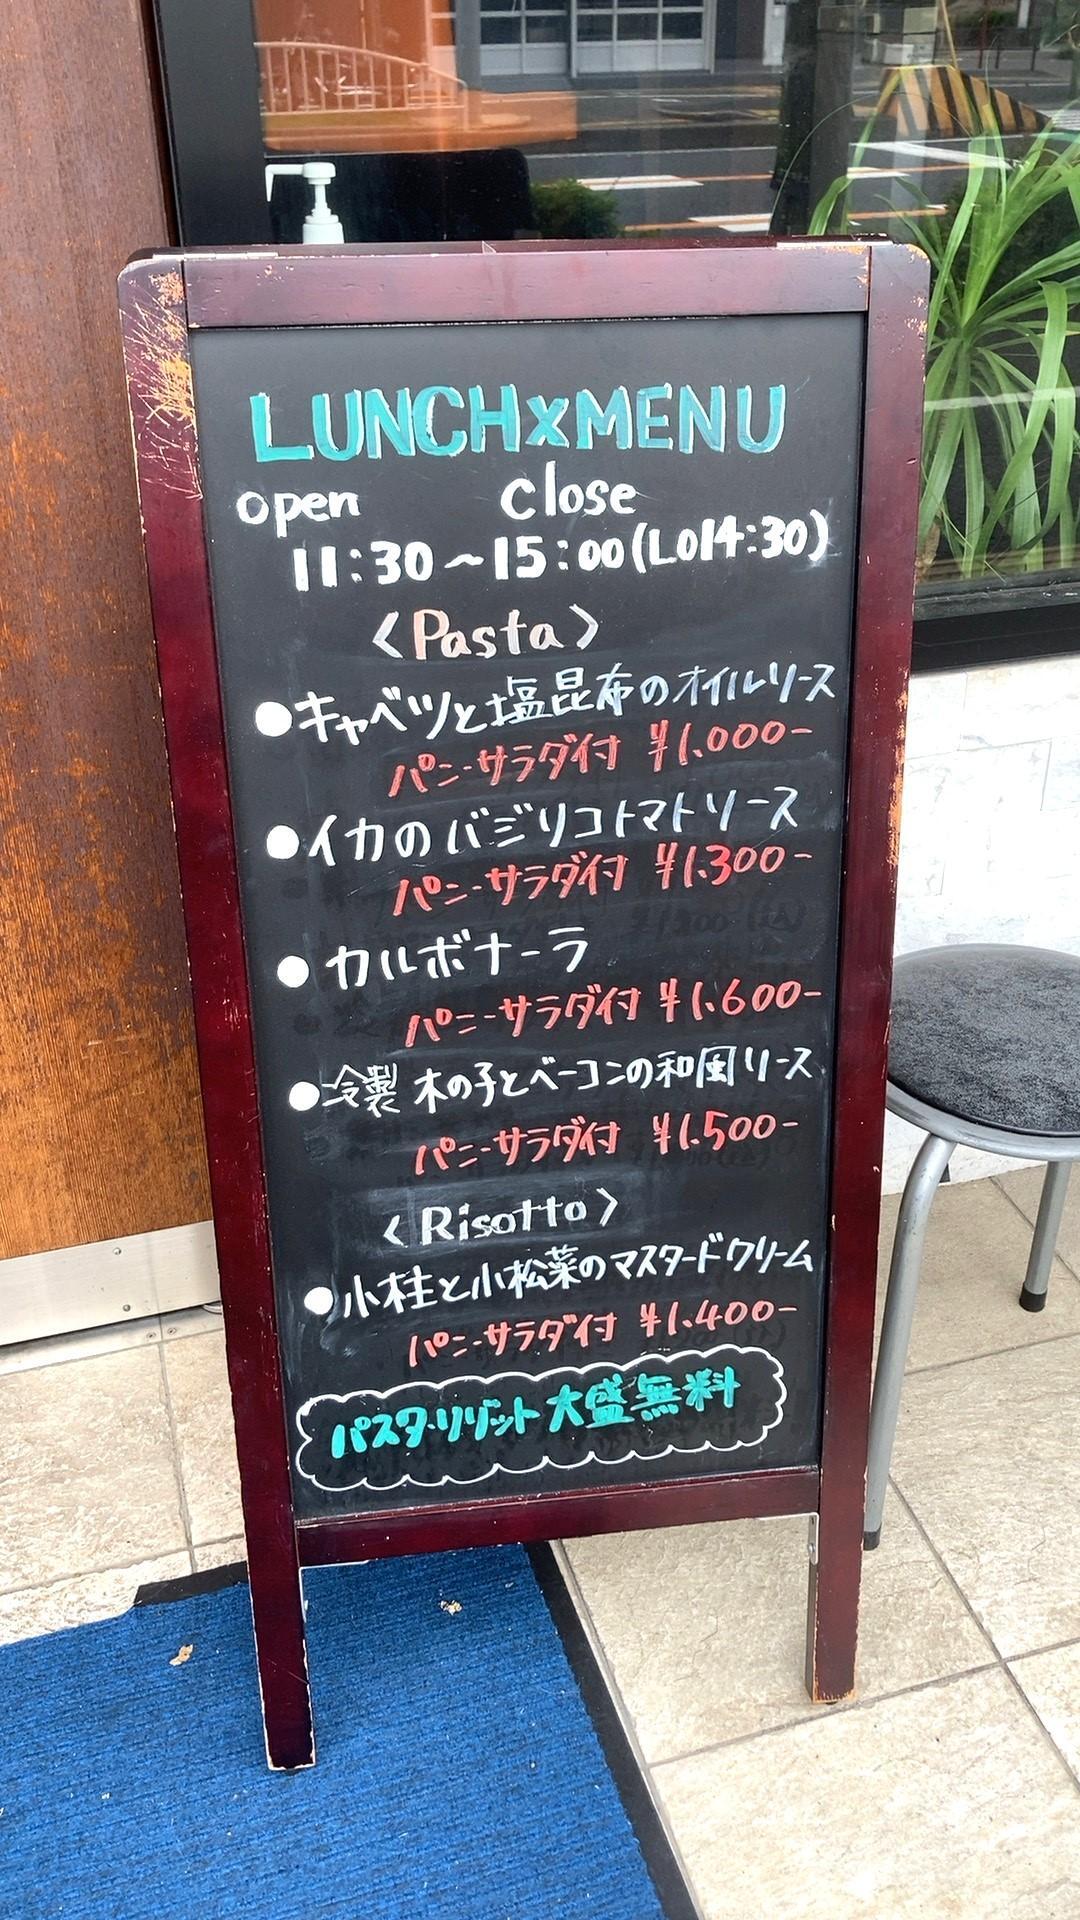 LUNCH×MENU
open close
11:30～15:00(LO14:30)
〈Pasta〉
●キャベツと塩昆布のオイルソース
パン・サラダ付 ¥1.000-
●イカのバジリコトマトソース
パン・サラダ付 ¥1.300-
●カルボナーラ
パン・サラダ付 ¥1.600-
●冷製 木の子とベーコンの和風ソース
パン・サラダ付 ¥1.500-
〈Risotto〉
●小柱と小松菜のマスタードクリーム
パン・サラダ付 ¥1.400-
パスタ・リゾット大盛無料